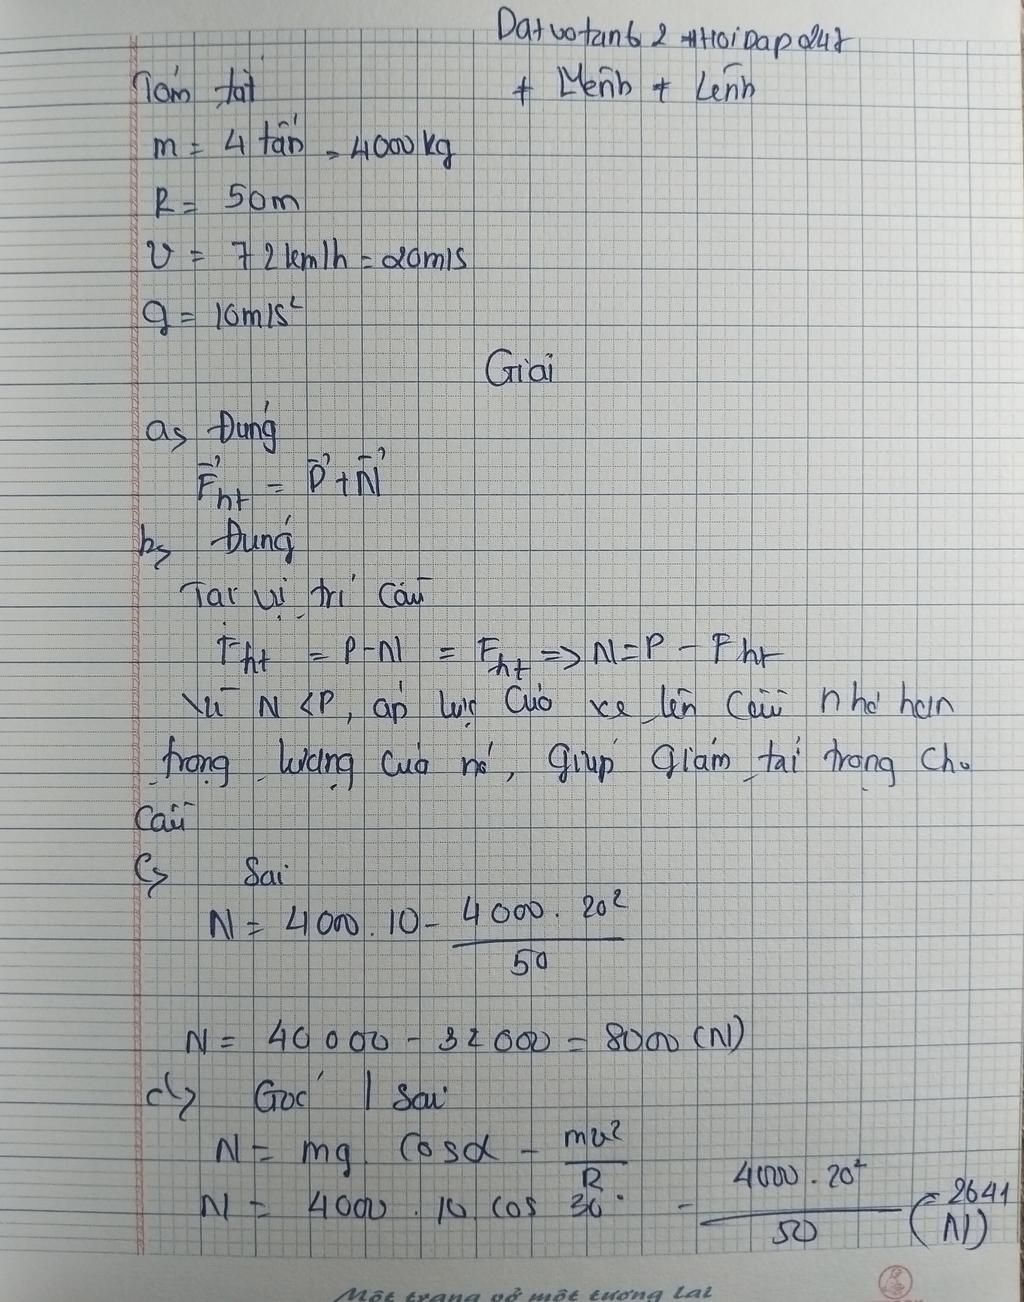 Datvotan62 + HoiDap247
+ Mệnh + Lệnh
Tóm tắt
m = 4 tấn = 4000 kg
R = 50m
v = 72 km/h = 20m/s
g = 10m/s²
Giải
a, Đúng
F⃗ht = P⃗ + N⃗
b, Đúng
Tại vị trí cầu
Fht = P-N = Fht => N = P - Fht
Vì N < P, áp lực của xe lên cầu nhỏ hơn
trọng lượng của nó, giúp giảm tải trọng cho
cầu
c, Sai
N = 4000 . 10 - 4000 . 20² / 50
N = 40 000 - 32 000 = 8000 (N)
d, Góc | Sai
N = mg cosα - mv² / R
N = 4000 . 10 cos 30° - 4000 . 20² / 50 (= 2641 N)
Một trang vở một tương lai